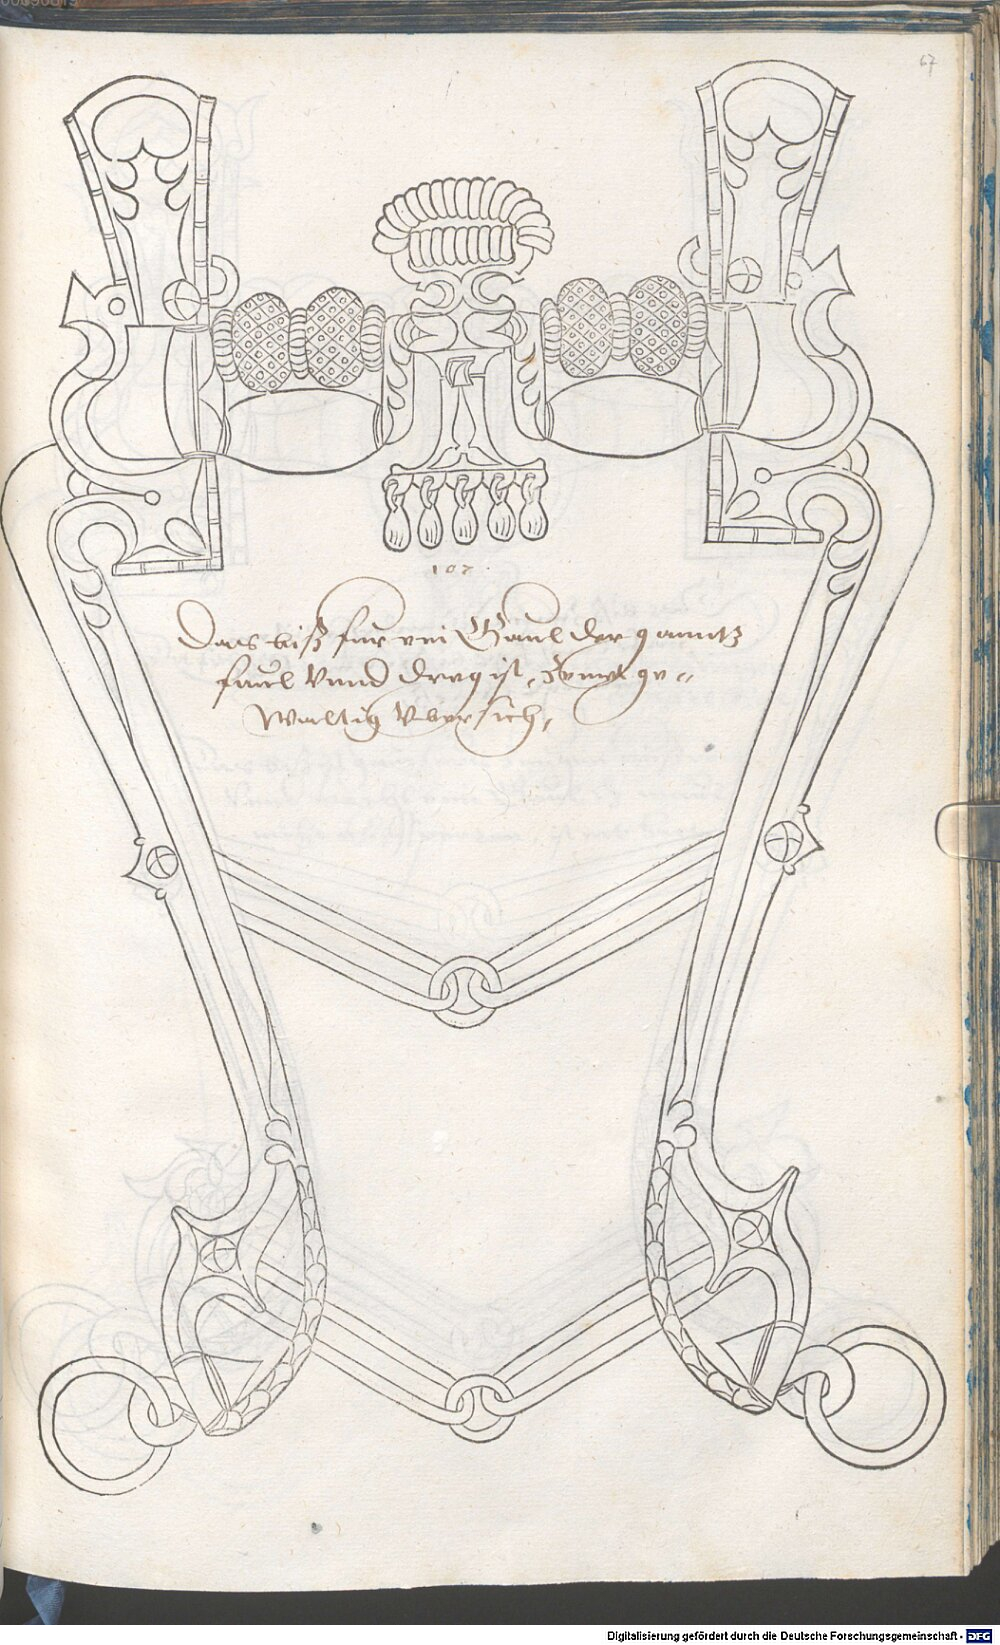 67
107.
Das biß fur ein Gaul der ganntz
faul Vnnd treg ist, Hennkt ge=
Waltig Vbersich,
Digitalisierung gefördert durch die Deutsche Forschungsgemeinschaft - DFG